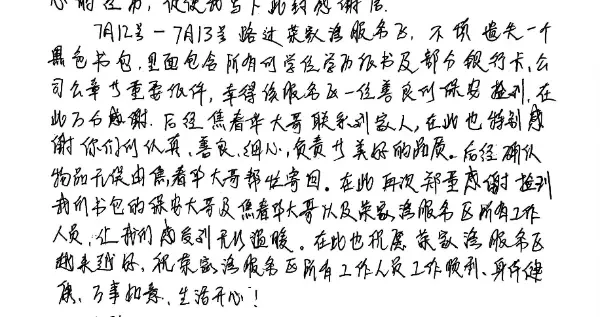 心的经历，促使我写下此封感谢信。
7月12号－7月13号路过荣家湾服务区，不慎遗失一个
黑色书包，里面包含所有的学位学历证书及部分银行卡、公
司公章等重要证件，幸得该服务区一位善良的保安捡到，在
此万分感谢。后经焦春华大哥联系到家人，在此也特别感
谢你们的认真、善良、细心，负责等美好的品质。后经确认
物品无误由焦春华大哥帮忙寄回。在此再次郑重感谢捡到
我们书包的保安大哥及焦春华大哥以及荣家湾服务区所有工作
人员，让我们感受到无比温暖。在此也祝愿荣家湾服务区
越来越好，祝荣家湾服务区所有工作人员工作顺利、身体健
康、万事如意、生活开心！